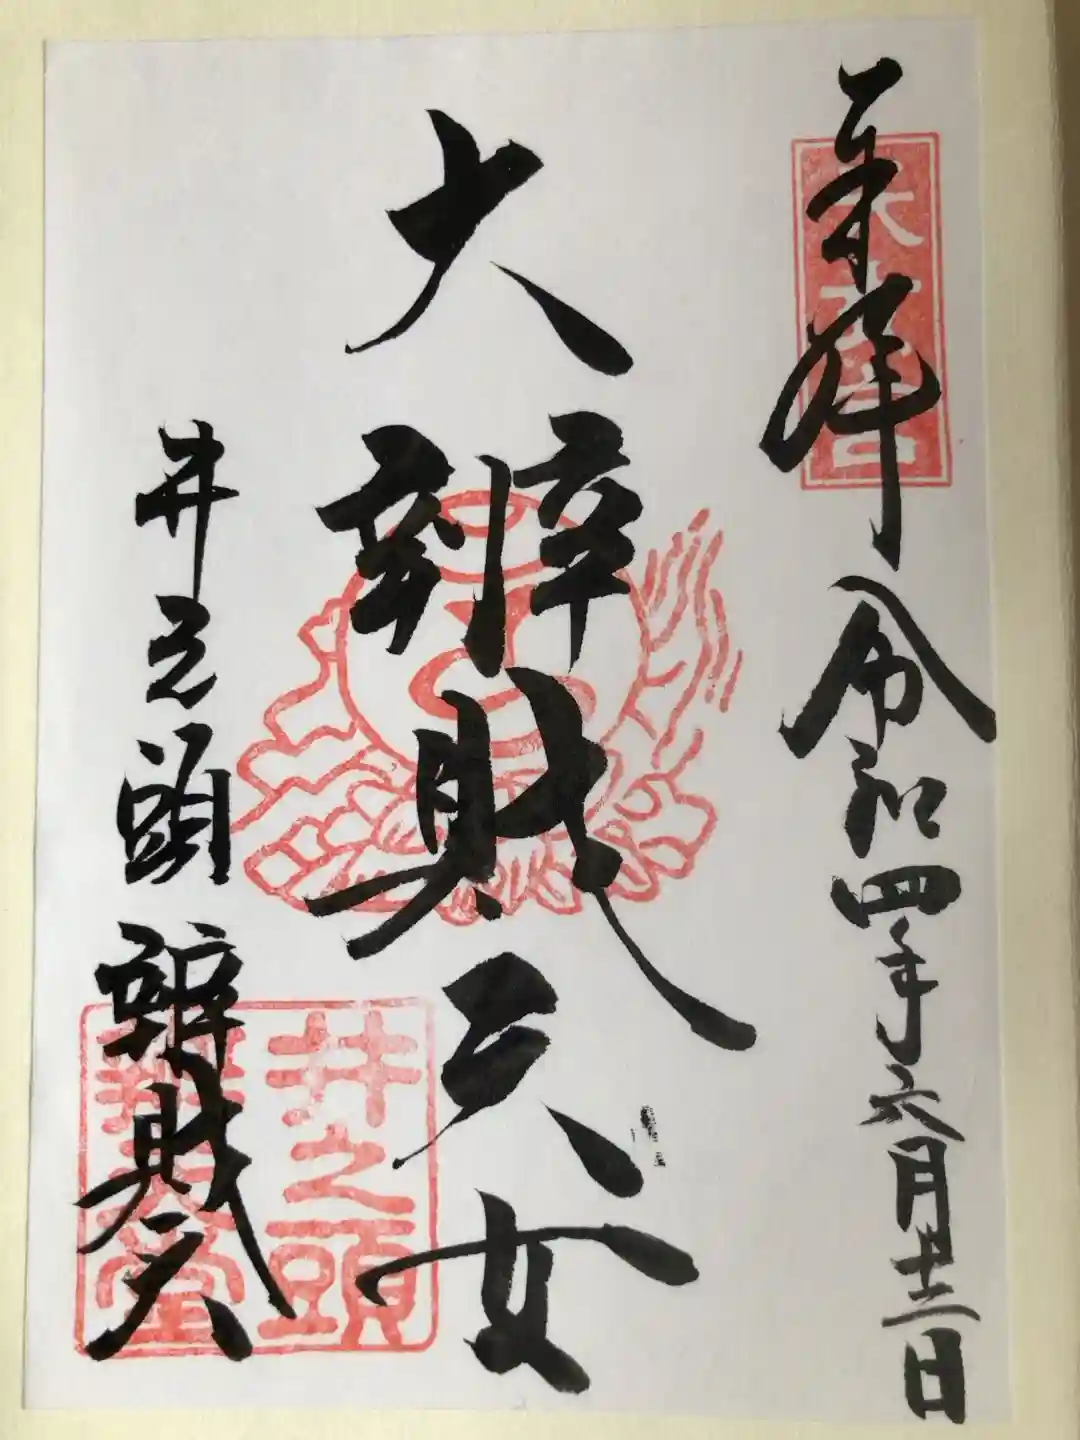 奉拝
令和四年六月十二日
大辨財天女
井之頭
辨財天
井之頭
辨天堂